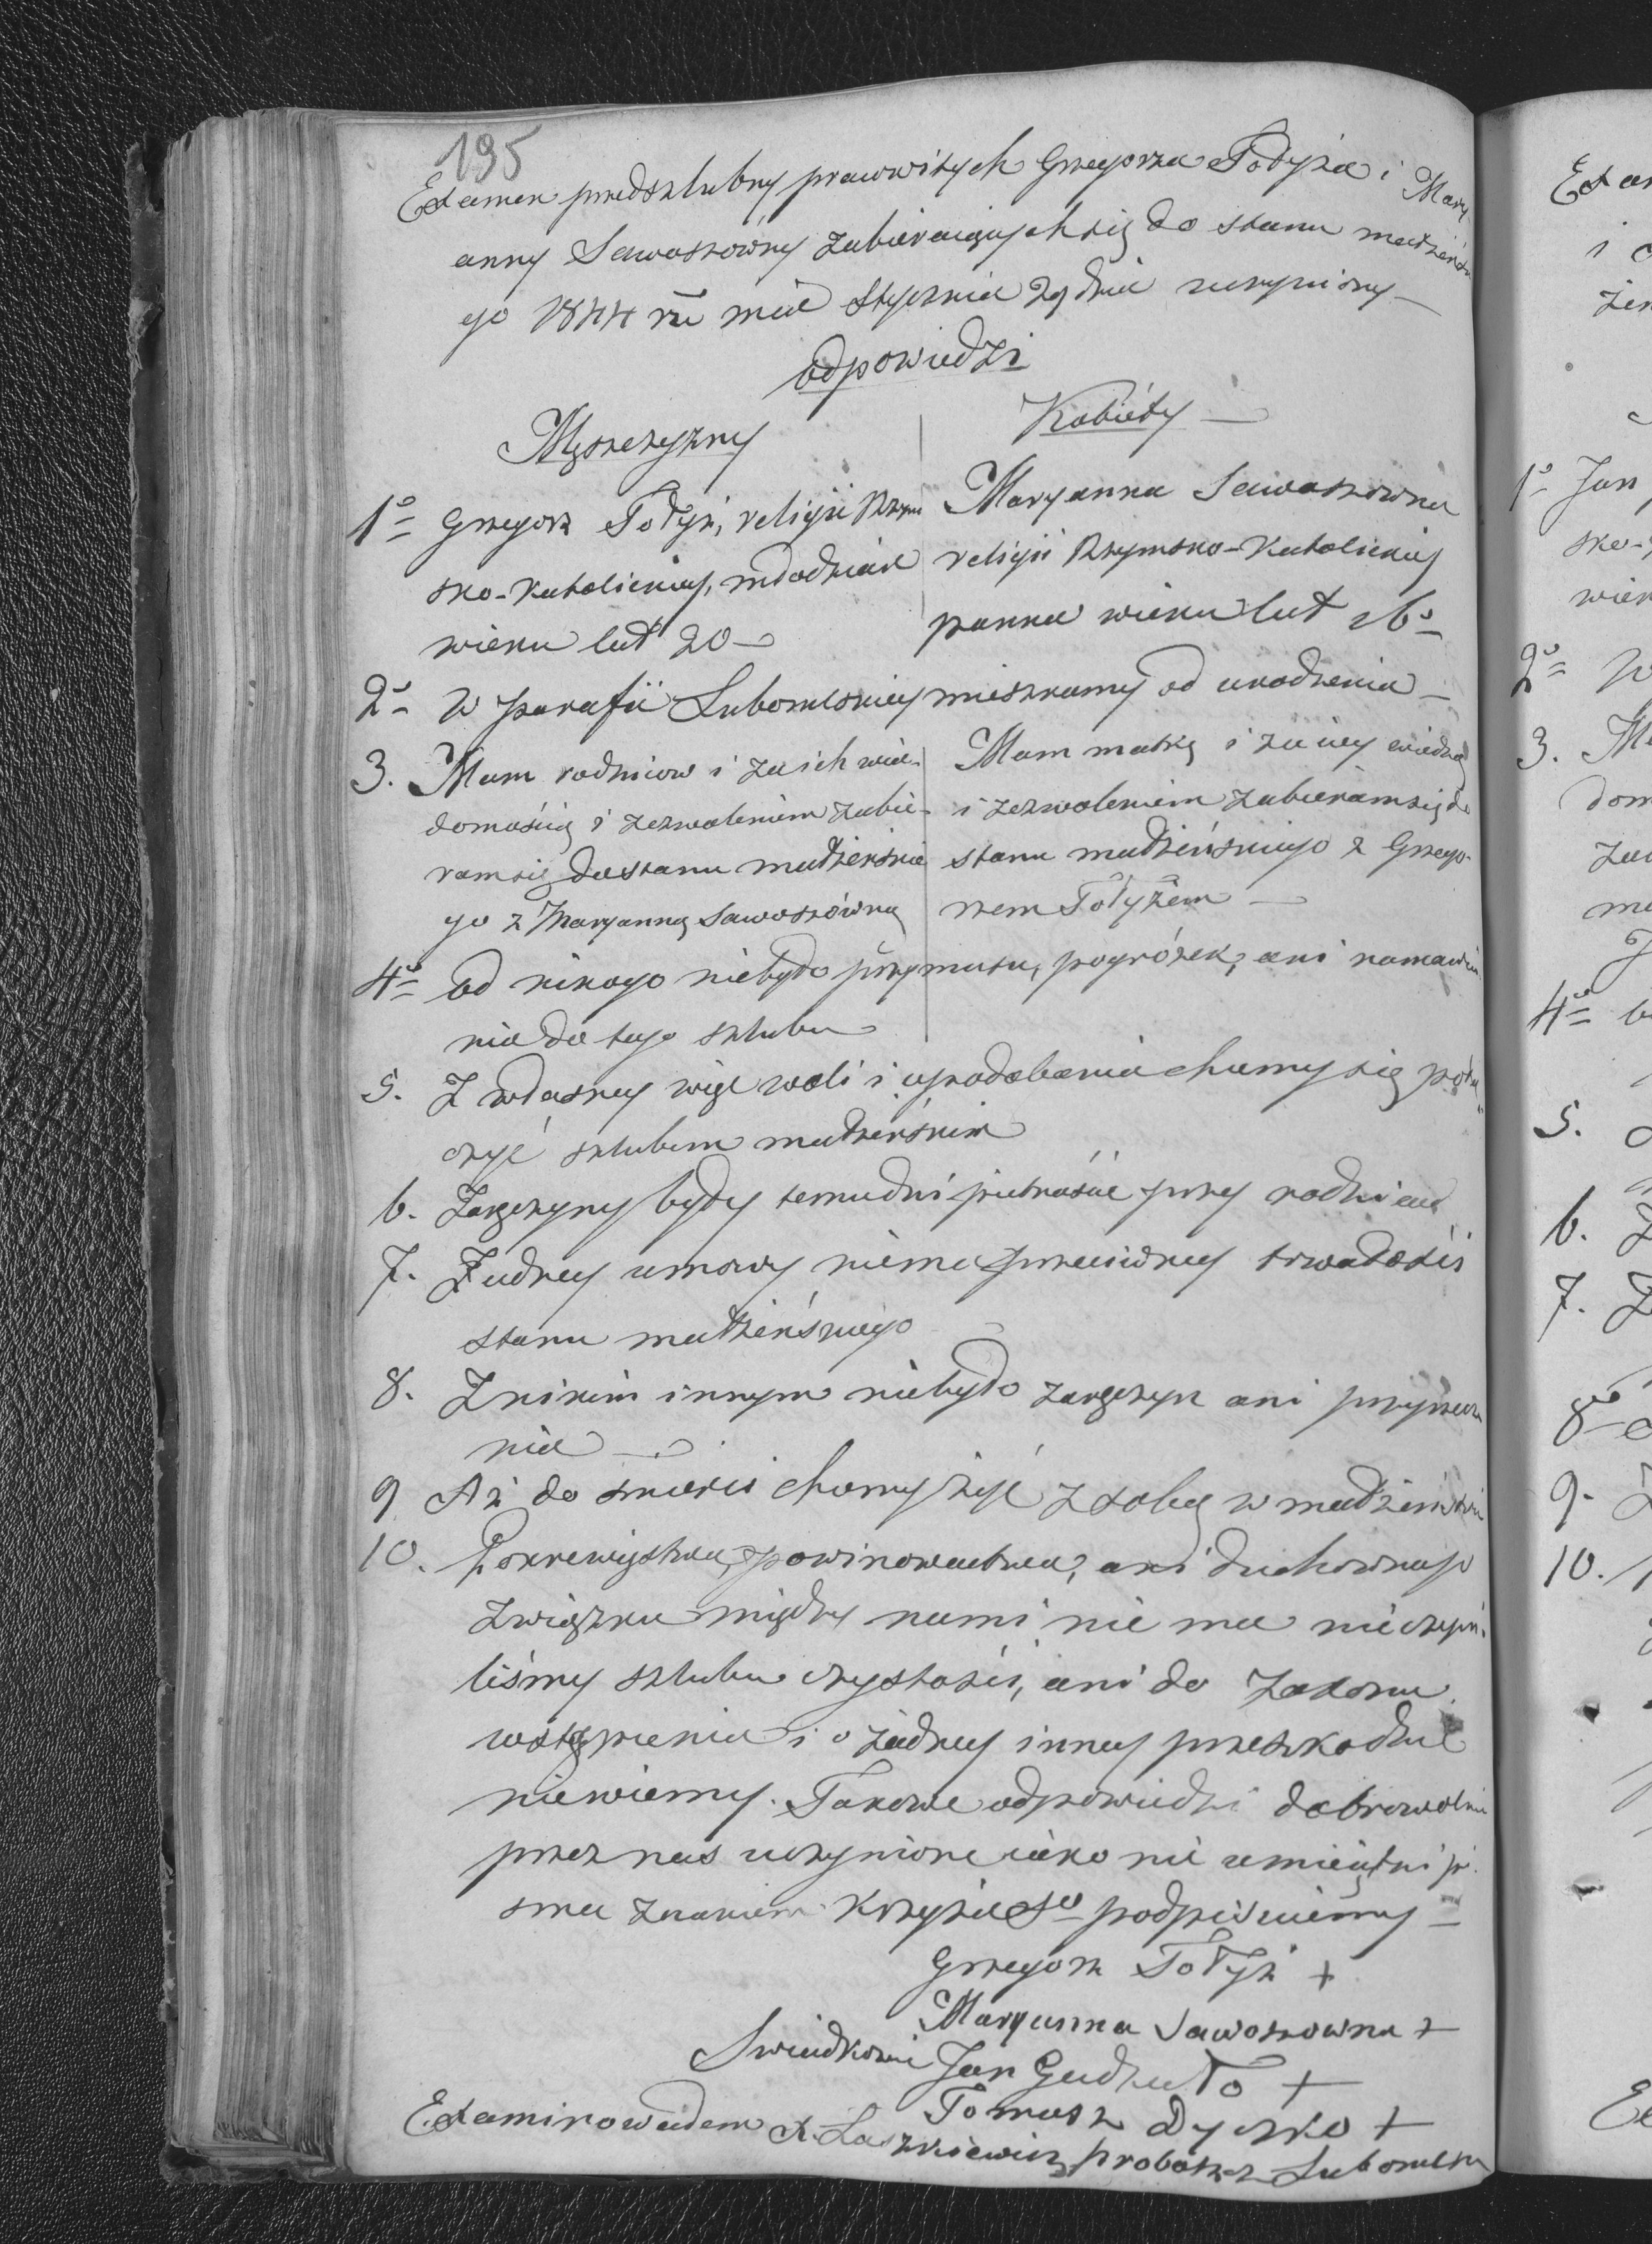 195
Examen przedszlubny prawowitych Grzegorza Tołyża i Mary
anny Sawoszówny zabieraiących się do stanu małżeńskie
go 1844 ru mie Stycznia 29 dnia uczyniony
odpowiedzi
Męszczyzny
Kobiéty
1o Grzegorz Tołyż, religii Rzym
sko-katolickiey, młodzian
wieku lat 20
Maryanna Sawoszowna
religii Rzymsko-Katolickiey
panna wieku lat 16
2o W parafii Lubomlskiey mieszkamy od urodzenia
3. Mam rodziców i za ich wia-
domością i zezwoleniem zabie-
ram się do stanu małżeńskie
go z Maryanną Sawoszówną
Mam matkę i za iey wiedzą
i zezwoleniem zabieram się do
stanu małżeńskiego z Grzego-
rzem Tołyżem
4o od nikogo niebyło przymusu, pogróżek, ani namawia
nia do tego szlubu
5. Z własney więc woli i upodobania chcemy się połą
czyć szlubem małżeńskim
6. Zaręczyny były temu dni piętnaście przy rodzicach
7. Żadney umowy niema przeciwney trwałości
stanu małżeńskiego
8. Z nikim innym niebyło zaręczyn ani przyrzecze
nia
9 Aż do śmierci chcemy żyć z sobą w małżeństwie
10. Pokrewieństwa, powinowactwa, ani duchownego
związku między nami nie ma nie czyni-
liśmy szlubu czystości, ani do zakonu
wstąpienia i o żadney inney przeszkodzie
niewiemy. Takowe odpowiedzi dobrowolnie
przez nas uczynione iako nie umieiętni pi-
sma znakiem krzyża So podpisuiemy
Grzegorz Tołyż +
Maryanna Sawoszowna +
Swiadkowie Jan Gudzało +
Tomasz Dyczko +
Examinowałem X. Laszkiewicz proboszcz Lubomlski